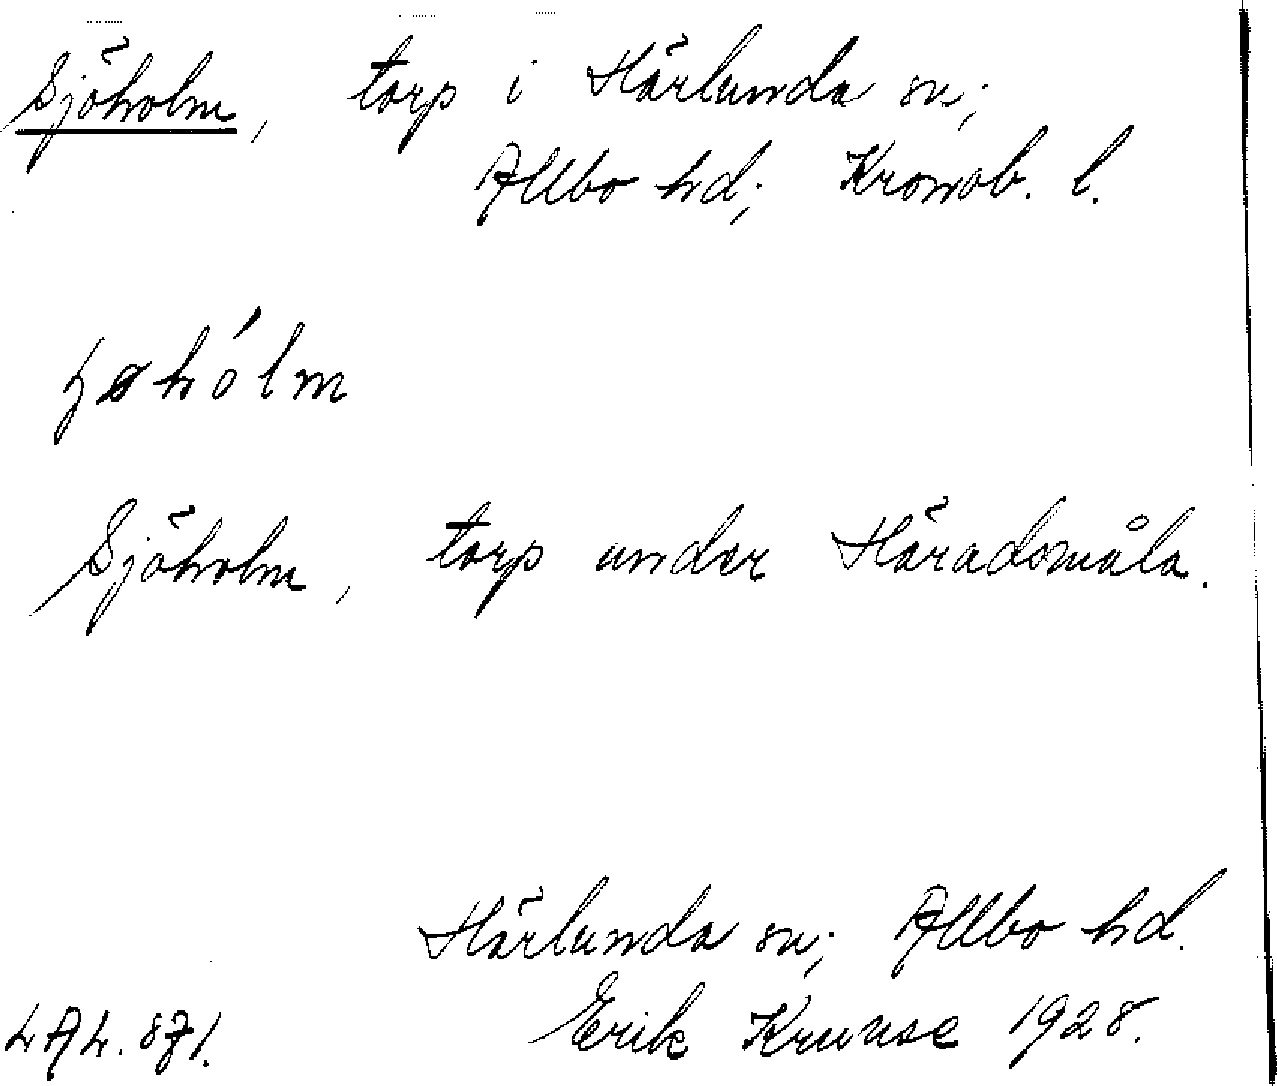 Sjöholm, torp i Härlunda sn;
Allbo hd; Kronob. l.
Sjöholm, torp under Häradsmåla.
Härlunda sn; Allbo hd.
LAL. 871. Erik Kruuse 1928.